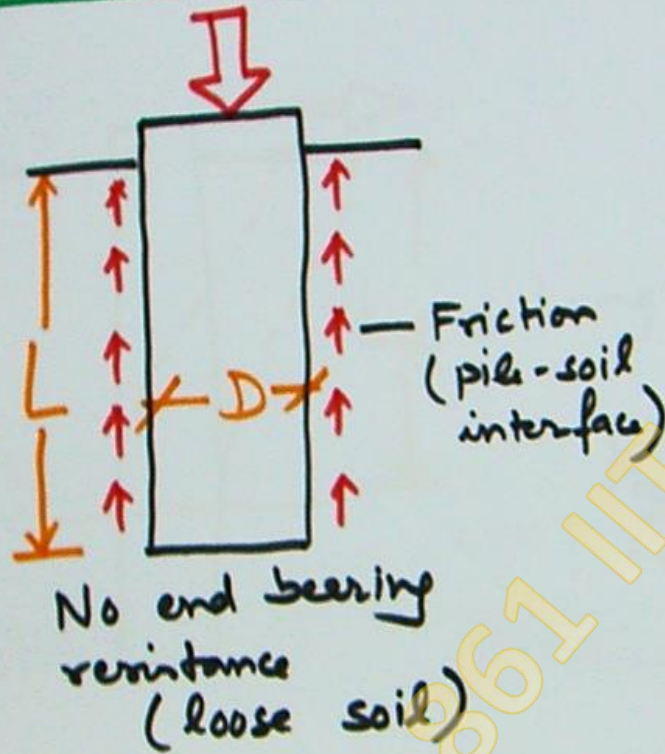 L
D
Friction
(pile-soil
interface)
No end beering
resistance
(loose soil)
861 IIT